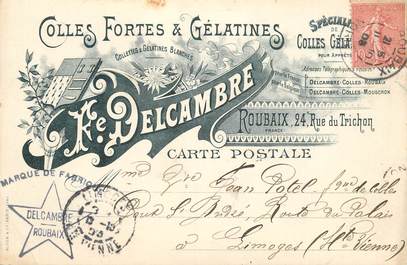 COLLES FORTES & GÉLATINES
SPÉCIALITÉ
DE
COLLES GÉLATINES
POUR APPRÊTS
Collettes & Gélatines Blanches
Adresses Télégraphiques
DELCAMBRE-COLLES-ROUBAIX
DELCAMBRE-COLLES-MOUSCRON
Fc. DELCAMBRE
ROUBAIX, 24, Rue du Trichon
FRANCE
CARTE POSTALE
MARQUE DE FABRIQUE
DELCAMBRE
ROUBAIX
Jean Potel
Pont St André, Route du Palais
à Limoges (Hte Vienne)